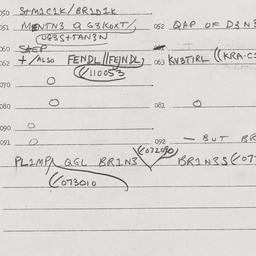 050 S+M1C1K/BR1D1K
051 MENTN3 Q G3KOKT/ 052 QAP OF D3N3
(UG3S+TAN3N
060 STEP
062 +/ALSO FENDL//FEJNDL) 063 KVBTIRL ((KRA·C
((110053
070 O
080 O 081 O
090 O
091 O 092 — BUT BR
PL1MP/ QGL BR1N3 ((072090 BR1N3S (07
((073010